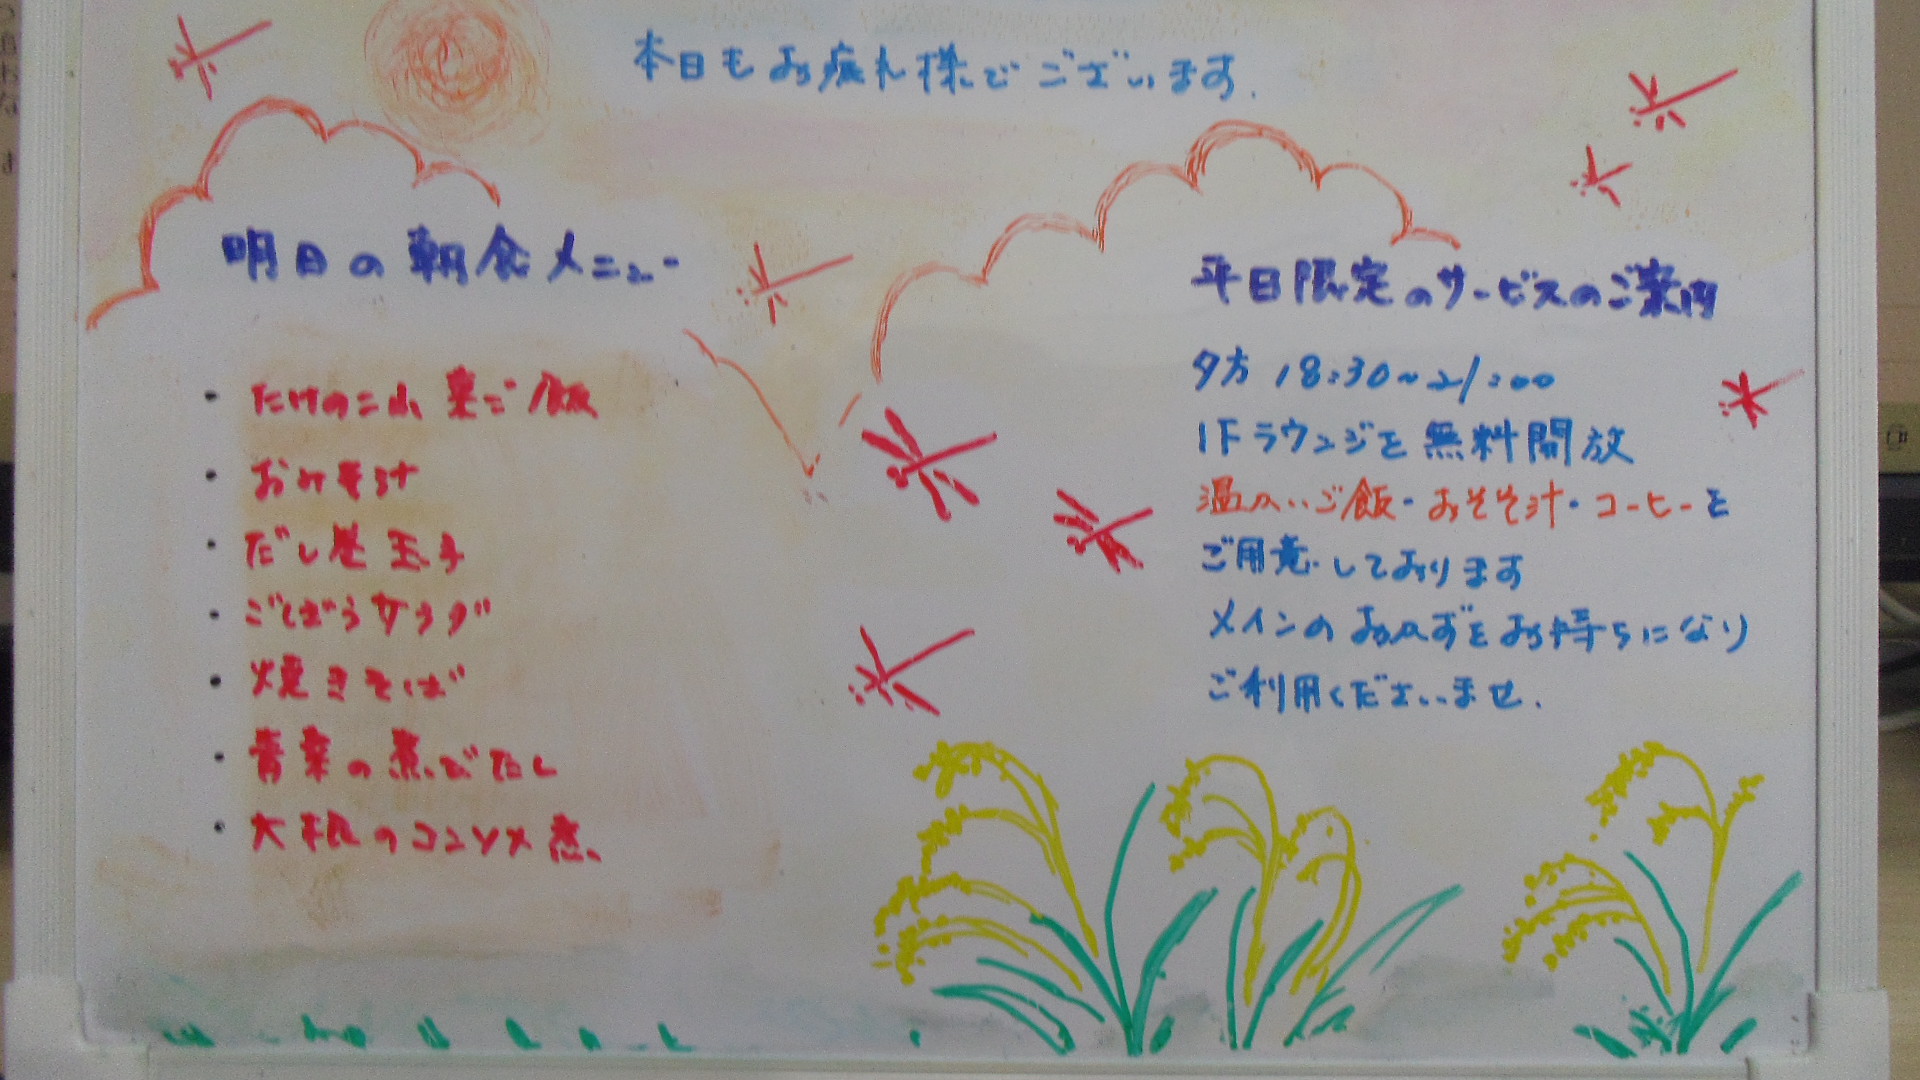 本日もお疲れ様でございます.
明日の朝食メニュー
・たけのこ山菜ご飯
・おみそ汁
・だし巻玉子
・ごぼうサラダ
・焼きそば
・青菜の煮びたし
・大根のコンソメ煮
平日限定のサービスのご案内
夕方 18:30~21:00
1Fラウンジを無料開放
温かいご飯・おそそ汁・コーヒーを
ご用意しております
メインのおかずをお持ちになり
ご利用くださいませ.